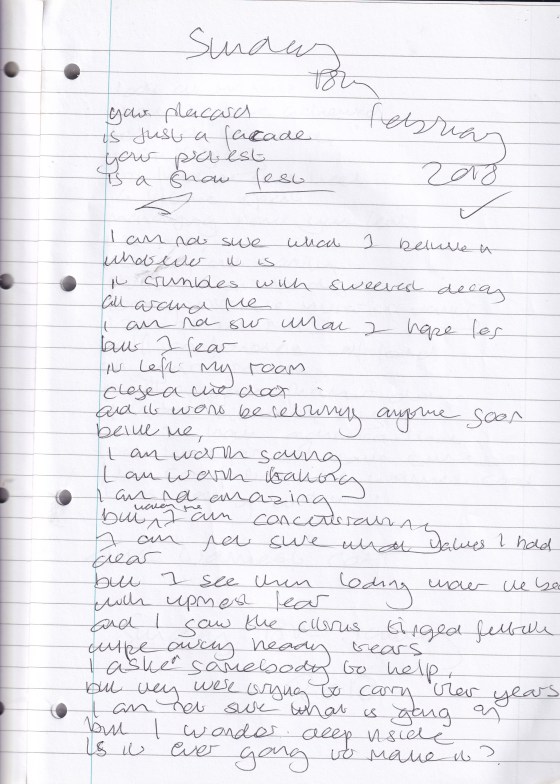 Sunday
18th
February
2018
your placard
is just a facade
your protest
is a show fest
I am not sure what I believe in
whatever it is
it crumbles with sweetest decay
all around me
I am not sure what I hope for
but I fear
it left my room
closed the door
and it wont be returning anytime soon
believe me,
I am worth saving
I am worth
I am not amazing
but I am concentrating
I am not sure what values I hold
dear
but I see them under the bed
with upmost fear
and I saw the citrus tinged
wipe away heady tears
I asked somebody to help,
but they were trying to carry their years
I am not sure what is going on
but I wonder deep inside
is it ever going to make it?